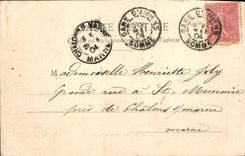 GARE D'AMIENS
SOMME
GARE D'AMIENS
SOMME
CHALONS S MARNE
04
MARNE
Mademoiselle Henriette Joly
Grande rue à St. Memmie
près de Châlons s/marne
marne